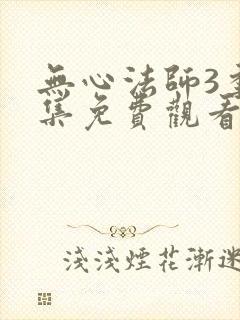 無心法師3全
集免費觀看
淺淺煙花漸迷